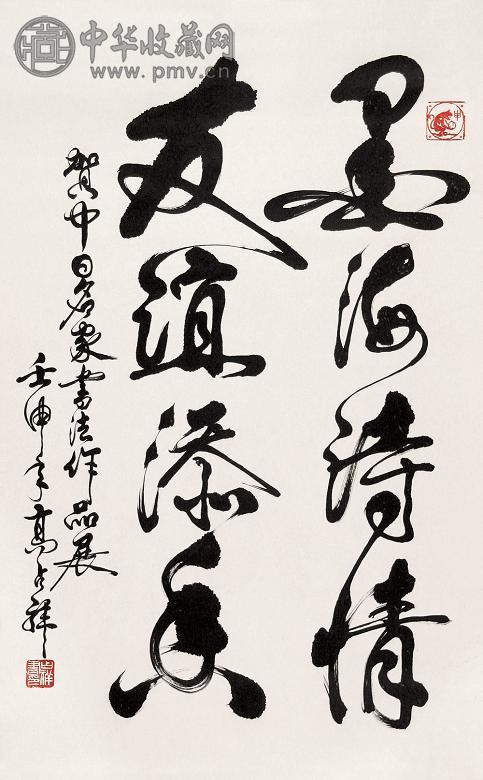 中华收藏网
www.pmv.cn
墨海诗情
友谊添香
贺中日名家书法作品展
壬申年高占祥
申